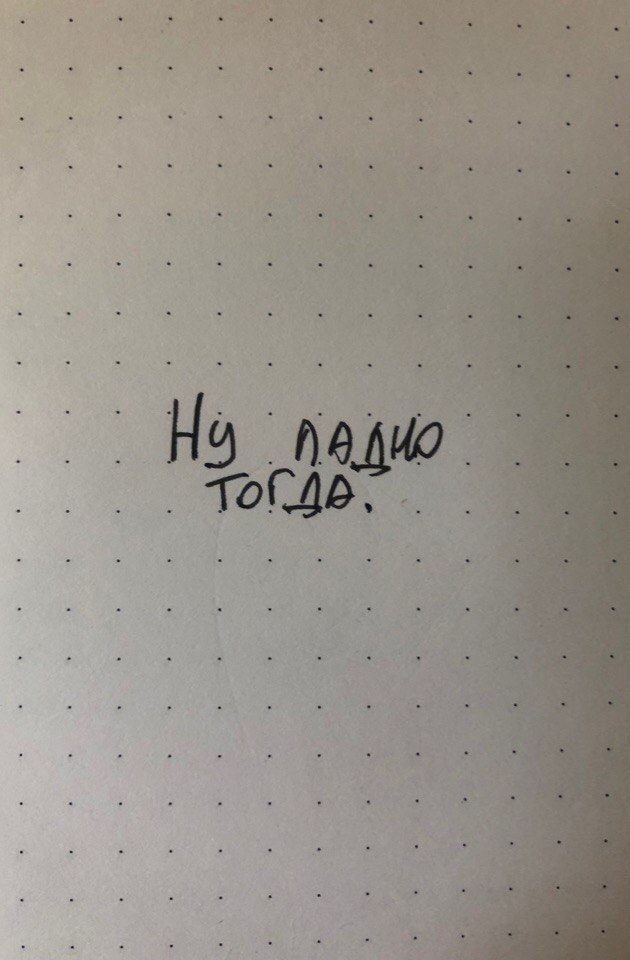 Ну ладно
тогда.